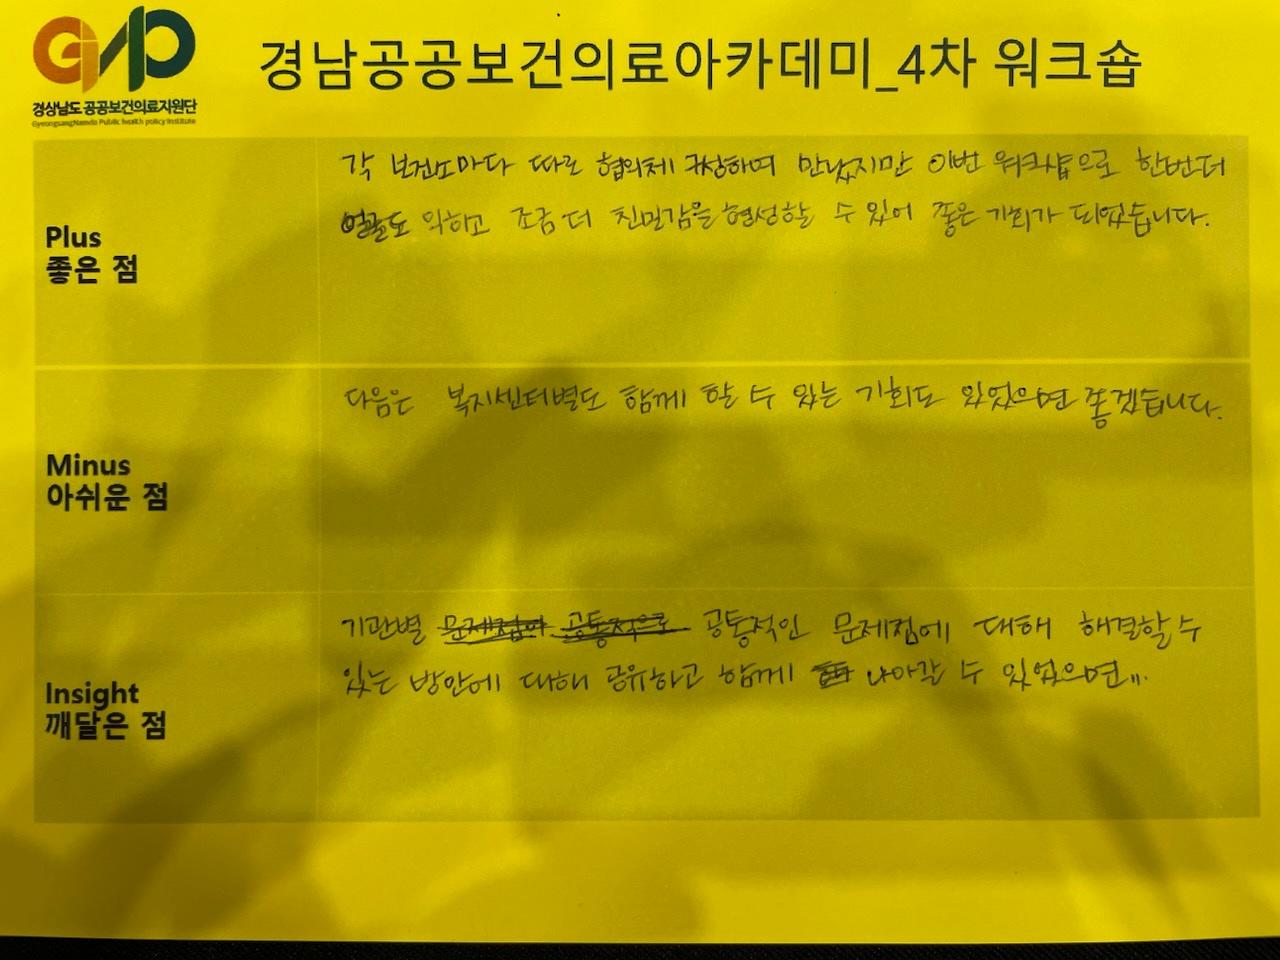 GNP
경상남도 공공보건의료지원단
GyeongsangNamdo Public health policy Institute
경남공공보건의료아카데미_4차 워크숍
Plus
좋은 점
각 보건소마다 따로 협의체 구성하며 만났지만 이번 워크샵으로 한번더
얼굴도 익히고 조금 더 친밀감을 형성할 수 있어 좋은 기회가 되었습니다.
Minus
아쉬운 점
다음은 복지센터별도 함께 할 수 있는 기회도 있었으면 좋겠습니다.
Insight
깨달은 점
기관별 문제점과 공통적으로 공통적인 문제점에 대해 해결할 수
있는 방안에 대해 공유하고 함께 나아갈 수 있었으면...